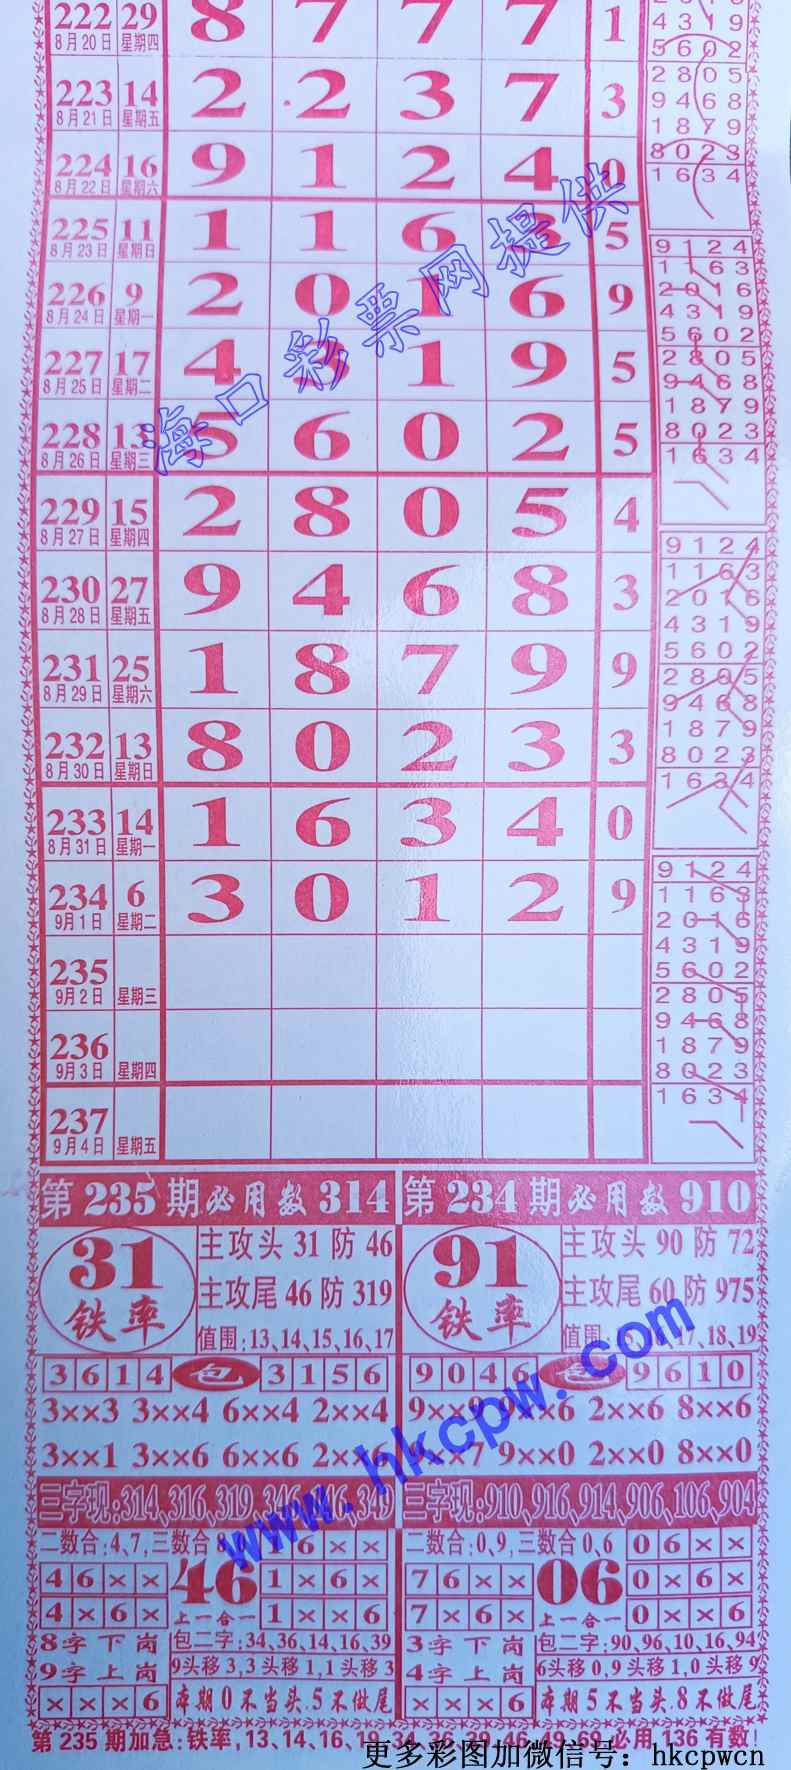 222 29 8 7 7 7 1
8月20日 星期四
223 14 2 2 3 7 3
8月21日 星期五
224 16 9 1 2 4 0
8月22日 星期六
225 11 1 1 6 3 5
8月23日 星期日
226 9 2 0 1 6 9
8月24日 星期一
227 17 4 3 1 9 5
8月25日 星期二
228 13 5 6 0 2 5
8月26日 星期三
229 15 2 8 0 5 4
8月27日 星期四
230 27 9 4 6 8 3
8月28日 星期五
231 25 1 8 7 9 9
8月29日 星期六
232 13 8 0 2 3 3
8月30日 星期日
233 14 1 6 3 4 0
8月31日 星期一
234 6 3 0 1 2 9
9月1日 星期二
235
9月2日 星期三
236
9月3日 星期四
237
9月4日 星期五
4319
5602
2805
9468
1879
8023
1634
9124
1163
2016
4319
5602
2805
9468
1879
8023
1634
9124
1163
2016
4319
5602
2805
9468
1879
8023
1634
9124
1163
2016
4319
5602
2805
9468
1879
8023
1634
海口彩票网提供
第235期必用数314
31
铁率
主攻头31防46
主攻尾46防319
值围:13,14,15,16,17
3614 包 3156
3××3 3××4 6××4 2××4
3××1 3××6 6××6 2××6
三字现:314,316,319,346,
二数合:4,7,三数合
46××
4×6×
46
上一合一
16××
1×6×
1××6
8字下岗
9字上岗
×××6
包二字:34,36,14,16,39
9头移3,3头移1,1头移3
本期0不当头.5不做尾
第234期必用数910
91
铁率
主攻头90防72
主攻尾60防975
值围: 17,18,19
9046 包 9610
9××6 2××6 8××6
9××0 2××0 8××0
三字现:910,916,914,906,106,904
二数合:0,9,三数合0,6
76××
7×6×
06
上一合一
06××
0×6×
0××6
3字下岗
4字上岗
×××6
包二字:90,96,10,16,94
6头移0,9头移1,0头移9
本期5不当头.8不做尾
www.hkcpw.com
第235期加急:铁率,13,14,16,19,34,36,39,46,49,69,必用136有数!
更多彩图加微信号：hkcpwcn